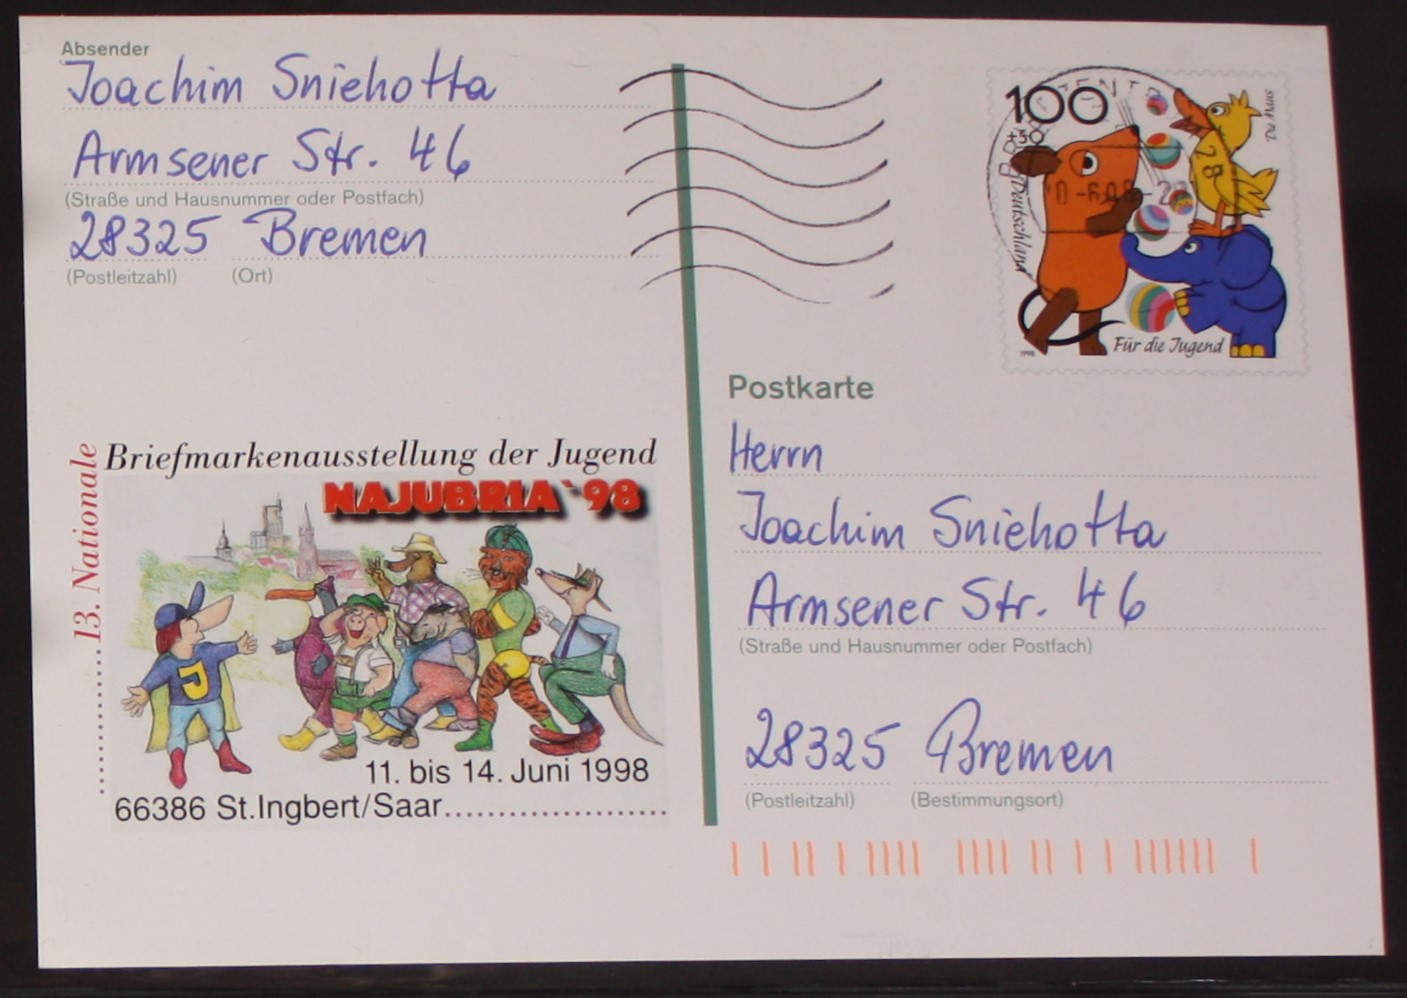 Absender
Joachim Sniehotta
Armsener Str. 46
(Straße und Hausnummer oder Postfach)
28325 Bremen
(Postleitzahl) (Ort)
100
+50
Deutschland
Die Maus
1998
Für die Jugend
Postkarte
Herrn
Joachim Sniehotta
Armsener Str. 46
(Straße und Hausnummer oder Postfach)
28325 Bremen
(Postleitzahl) (Bestimmungsort)
13. Nationale
Briefmarkenausstellung der Jugend
NAJUBRIA`98
J
11. bis 14. Juni 1998
66386 St.Ingbert/Saar